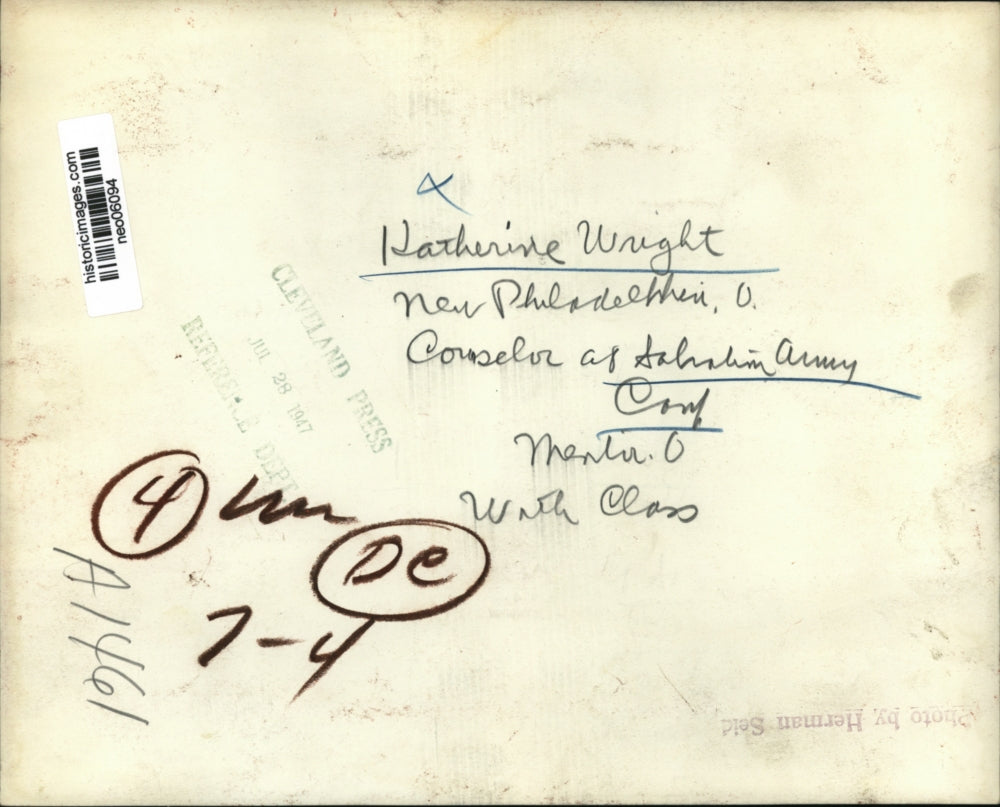 historicimages.com
neo06094
Katherine Wright
New Philadelphia, O.
Counselor at Salvation Army
Camp
Mentor. O
With Class
CLEVELAND PRESS
JUL 28 1947
REFERENCE DEPT
4
DC
7-4
A1461
Photo by Herman Seid